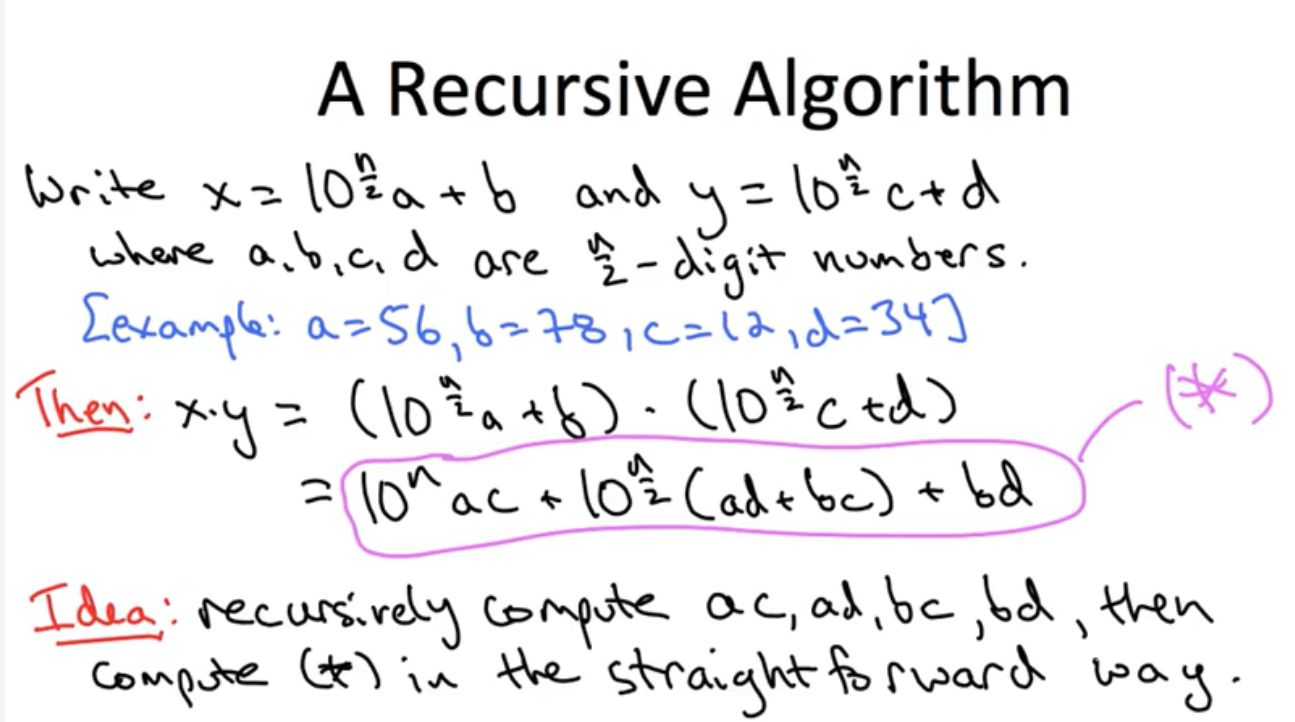 A Recursive Algorithm
Write x = 10^(n/2) a + b and y = 10^(n/2) c + d
where a, b, c, d are n/2 - digit numbers.
[example: a=56, b=78, c=12, d=34]
Then: x·y = (10^(n/2) a + b) · (10^(n/2) c + d) (*)
= 10^n ac + 10^(n/2) (ad + bc) + bd
Idea: recursively compute ac, ad, bc, bd, then
compute (*) in the straightforward way.